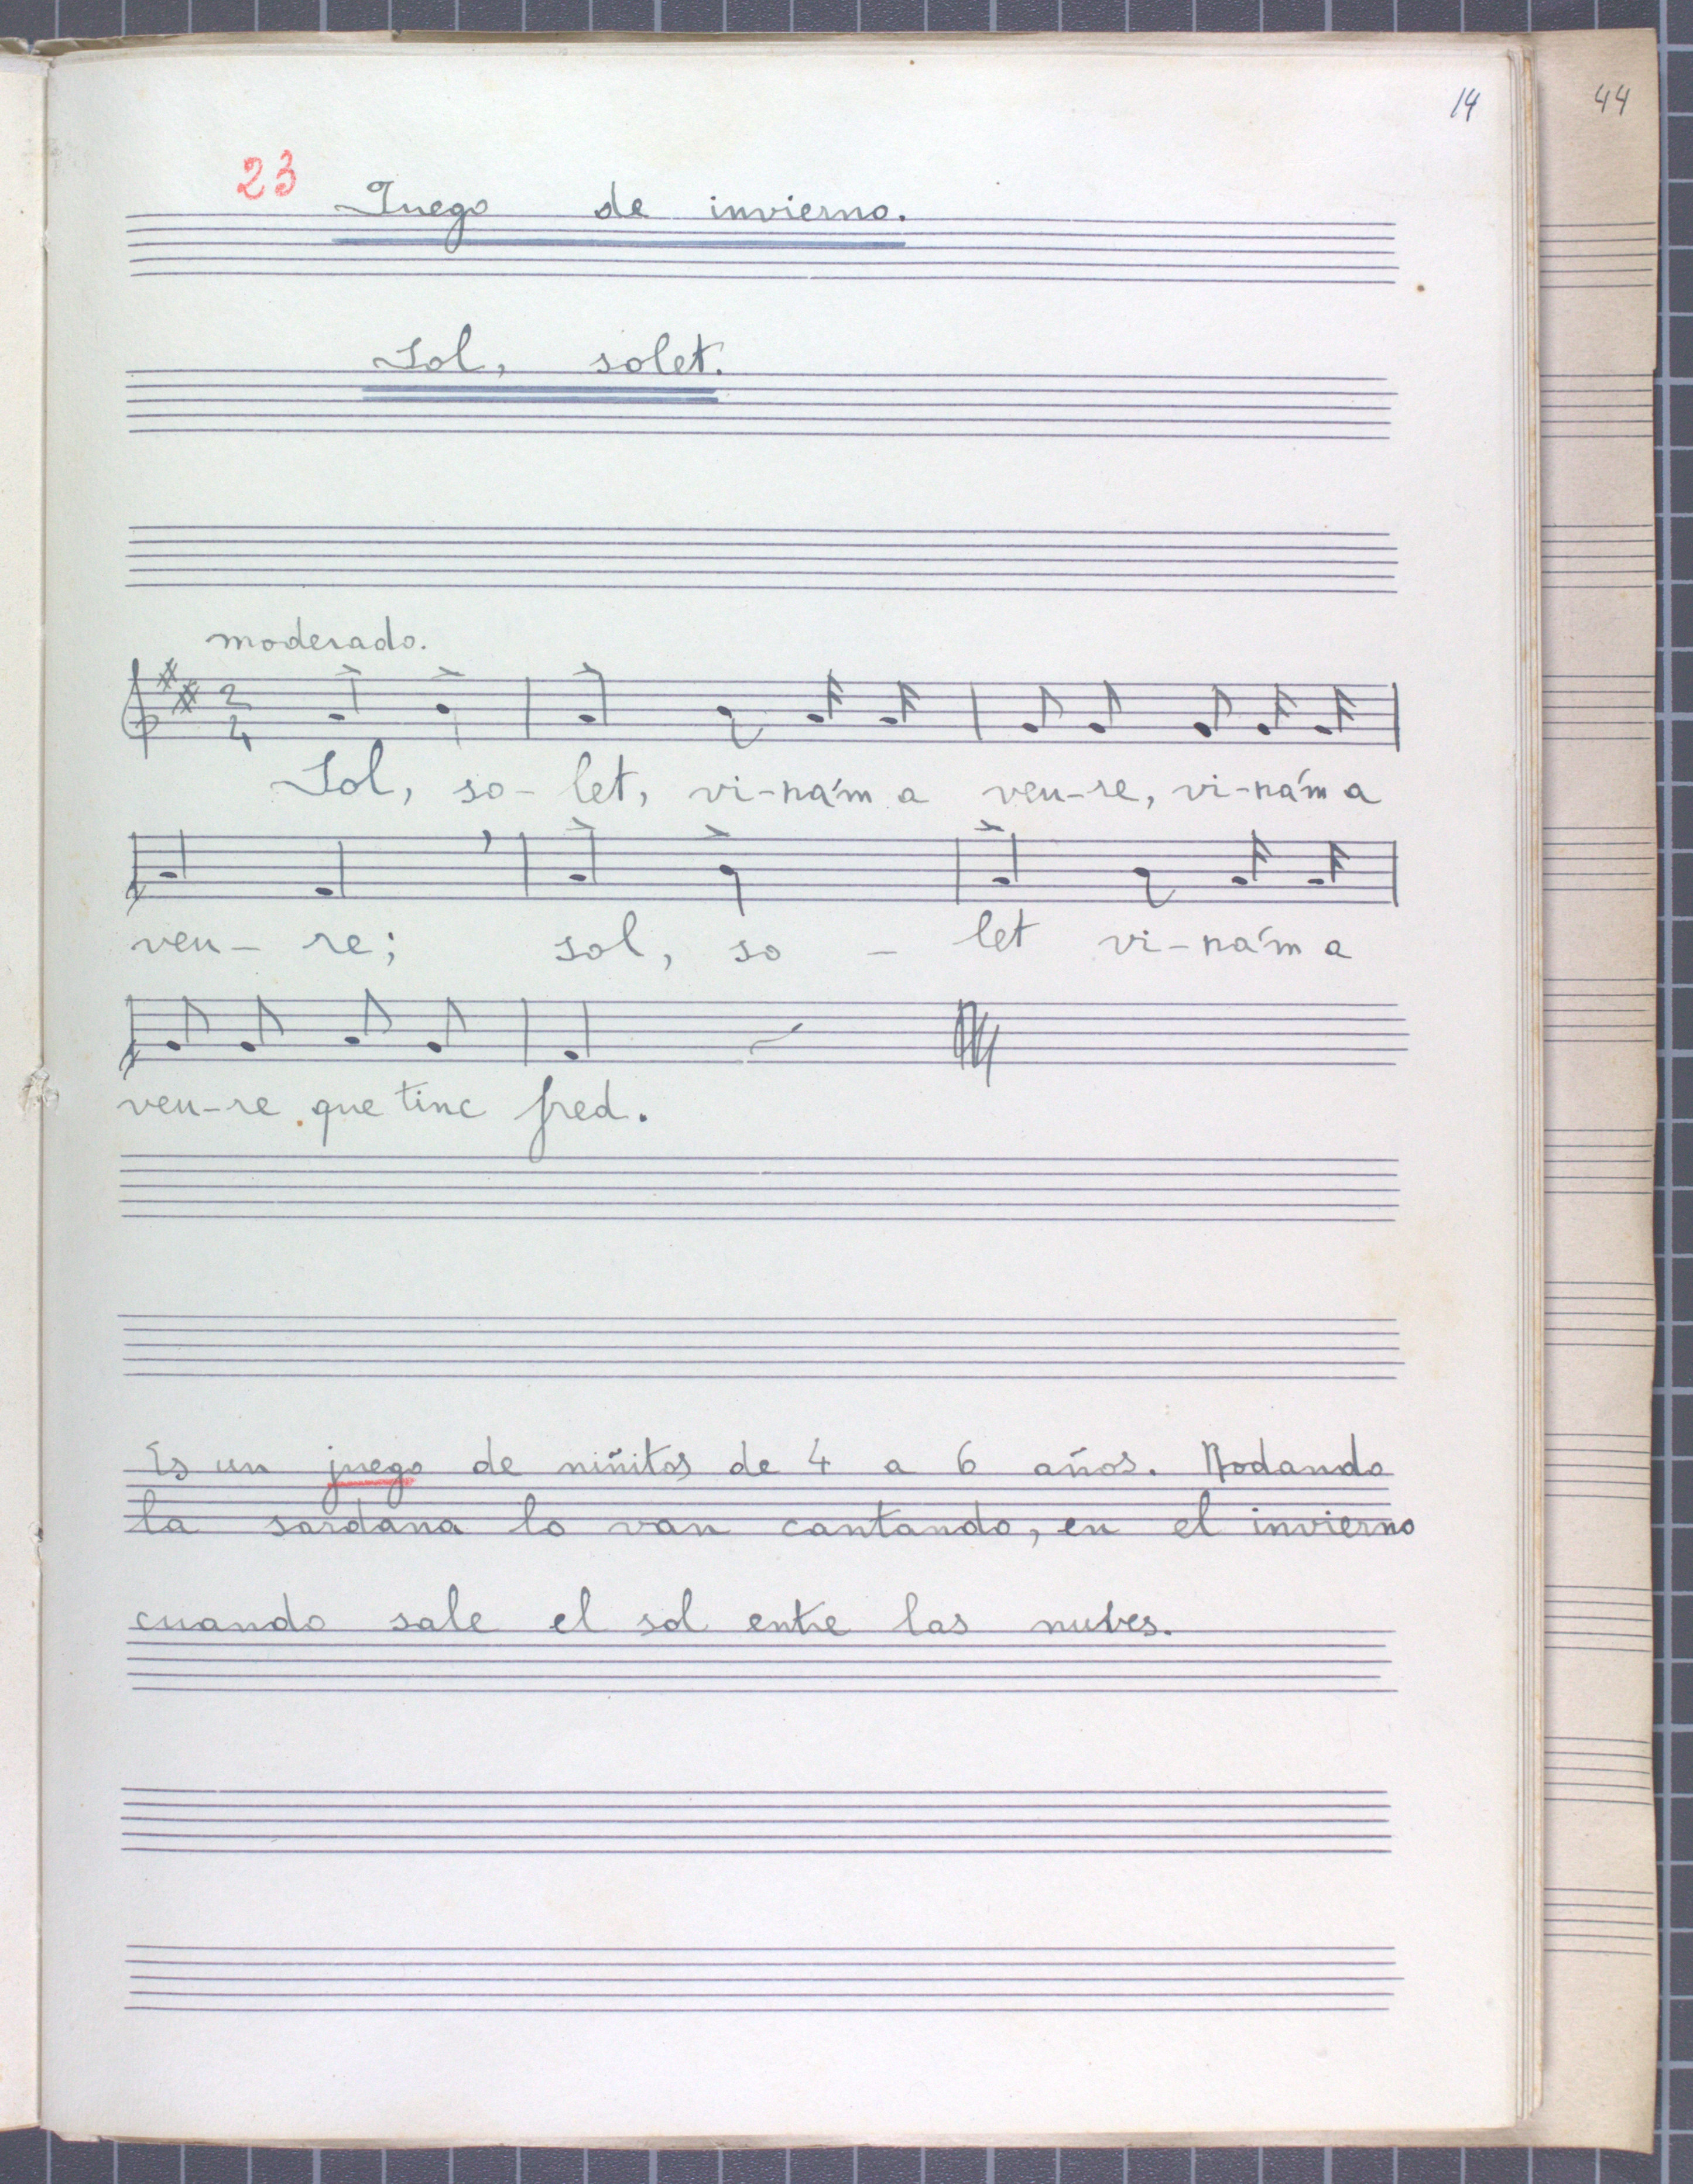 14
44
23
Juego de invierno.
Sol, solet.
moderado.
2
4
Sol, so-let, vi-na'm a veu-re, vi-na'm a
veu-re; sol, so-let vi-na'm a
veu-re que tinc fred.
Es un juego de niñitos de 4 a 6 años. Rodando
la sardana lo van cantando, en el invierno
cuando sale el sol entre las nubes.